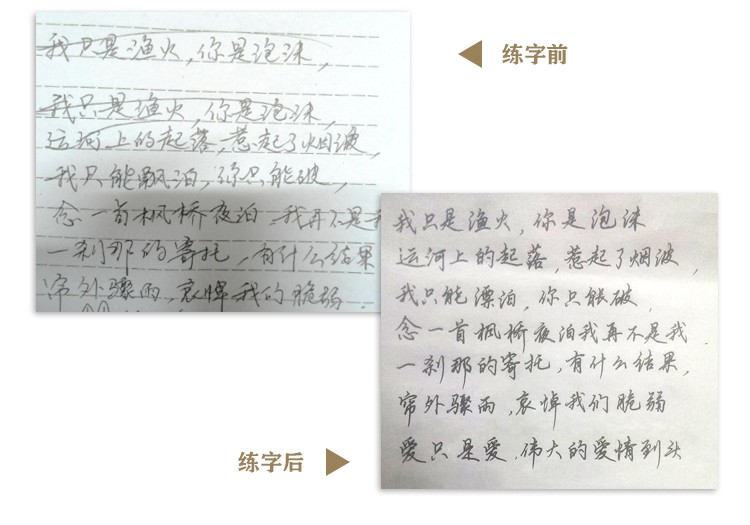 我只是渔火,你是泡沫,
我只是渔火,你是泡沫,
运河上的起落,惹起了烟波,
我只能飘泊,你只能破,
念一首枫桥夜泊,我再不是我
一刹那的寄托,有什么结果
帘外骤雨,哀悼我的脆弱.
练字前
我只是渔火,你是泡沫
运河上的起落,惹起了烟波,
我只能漂泊,你只能破,
念一首枫桥夜泊我再不是我.
一刹那的寄托,有什么结果,
帘外骤雨,哀悼我们脆弱
爱只是爱,伟大的爱情到头
练字后